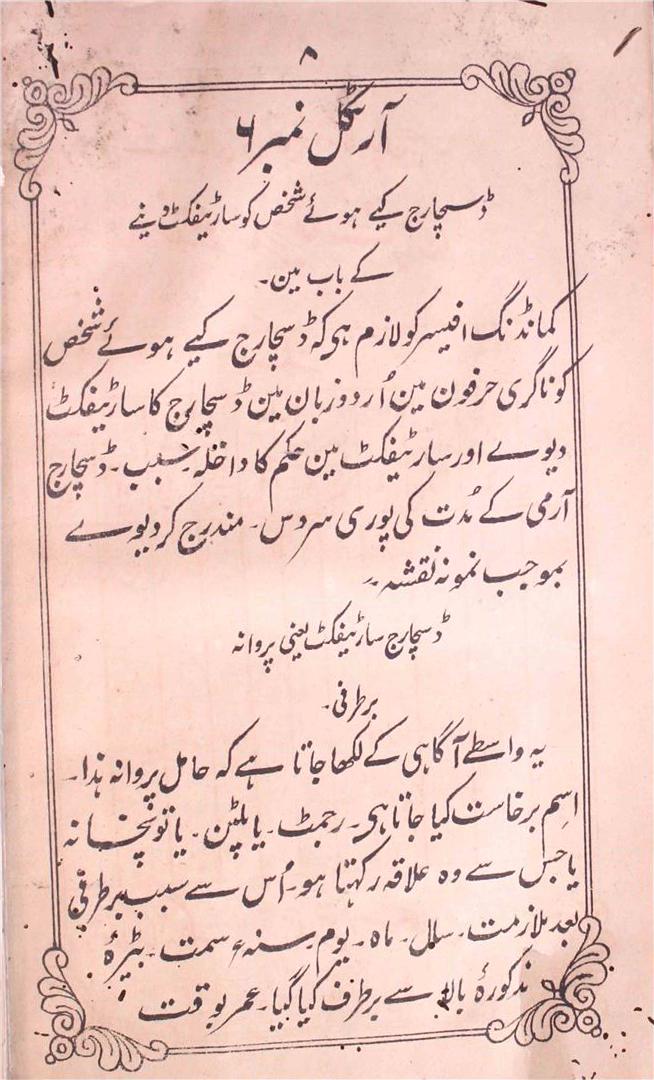 ۸
آرٹیکل نمبر ۶
ڈسچارج کیے ہوئے شخص کو سارٹیفکٹ دینے
کے باب مین۔
کمانڈنگ افیسر کو لازم ہی کہ ڈسچارج کیے ہوئے شخص
کو ناگری حرفون مین اُردو زبان مین ڈسچارج کا سارٹیفکٹ
دیوے اور سارٹیفکٹ مین حکم کا داخلہ۔ سبب۔ ڈسچارج
آرمی کے مُدت کی پوری سروس۔ مندرج کر دیوے
بموجب نمونہ نقشہ۔
ڈسچارج سارٹیفکٹ یعنی پروانہ
برطرفی۔
یہ واسطے آگاہی کے لکھا جاتا ہے کہ حامل پروانہ ہذا۔
اسِم برخاست کیا جاتا ہی۔ رجمٹ۔ یا پلٹن۔ یا توپخانہ
یا جس سے وہ علاقہ رکہتا ہو۔ اُس سے سبب برطرفی
بعد ملازمت۔ سال۔ ماہ۔ یوم۔ سنہ ء سمت۔ بٹیرہٗ
مذکورۂ بالا سے برطرف کیا گیا۔ عمر بوقت